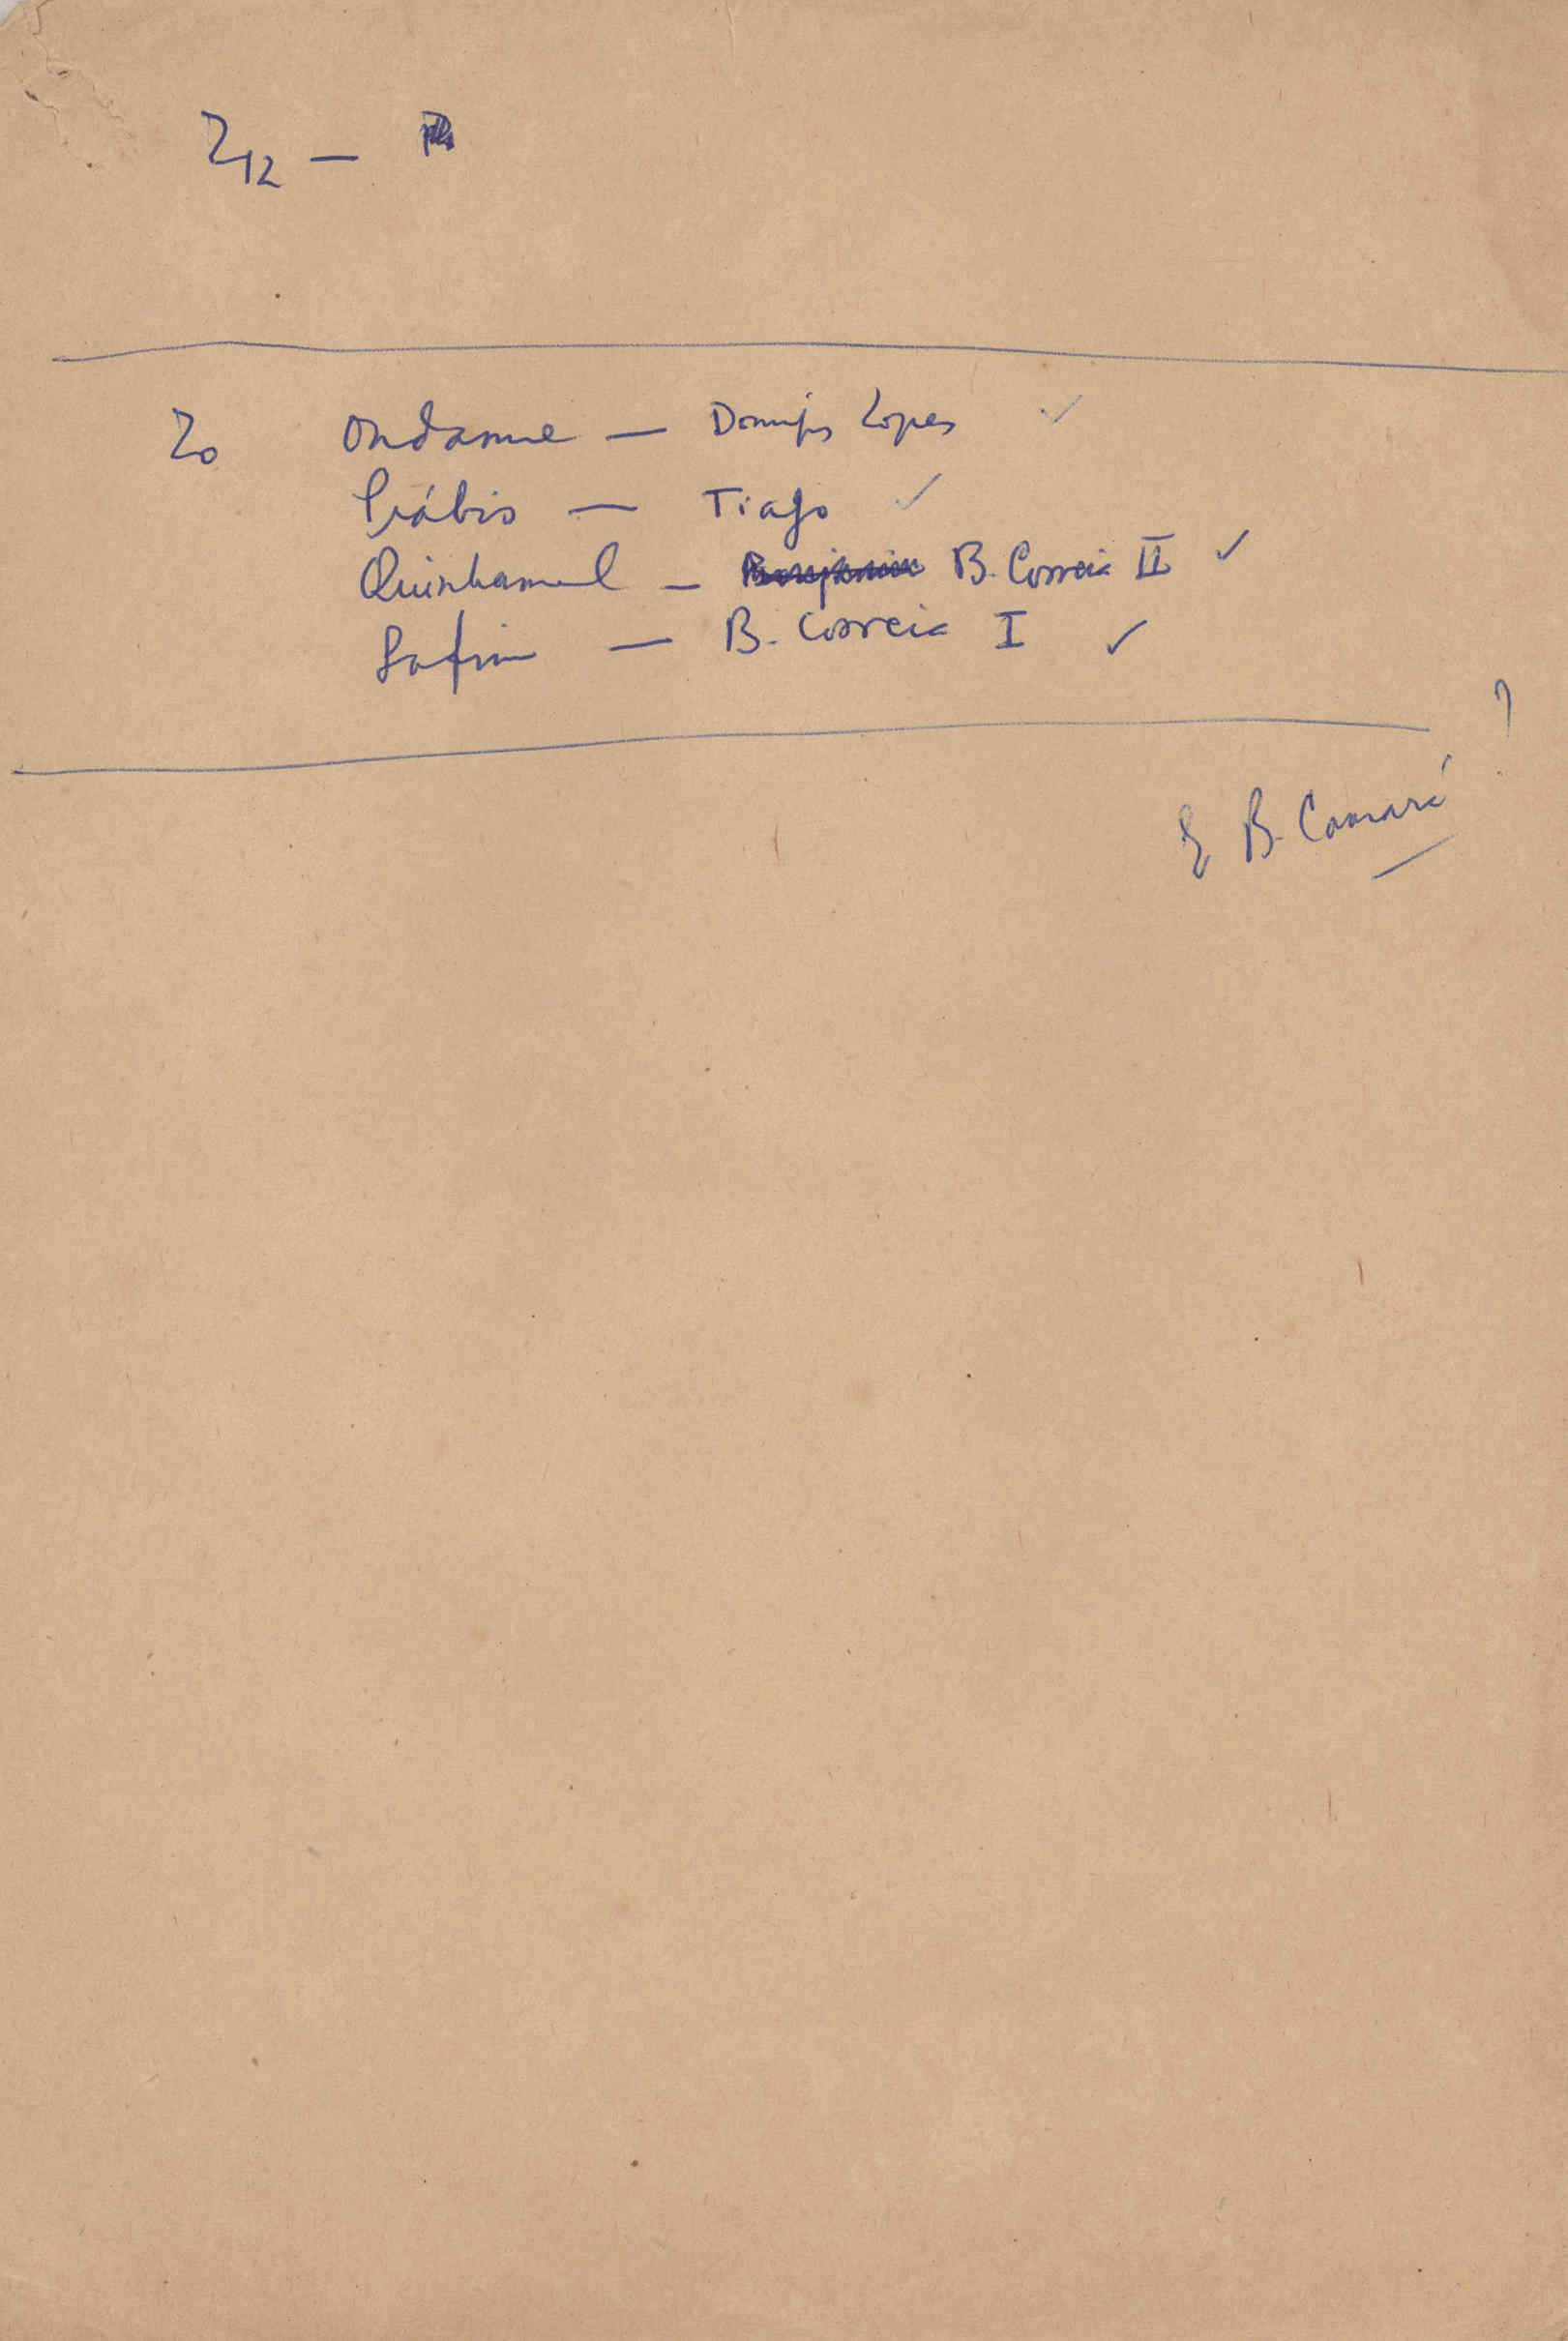 Z12 —
Zo Ondame — Domgos Lopes ✓
Prábis — Tiago ✓
Quinhamel — B. Correia II ✓
Safim — B. Correia I ✓
?
E B. Camará